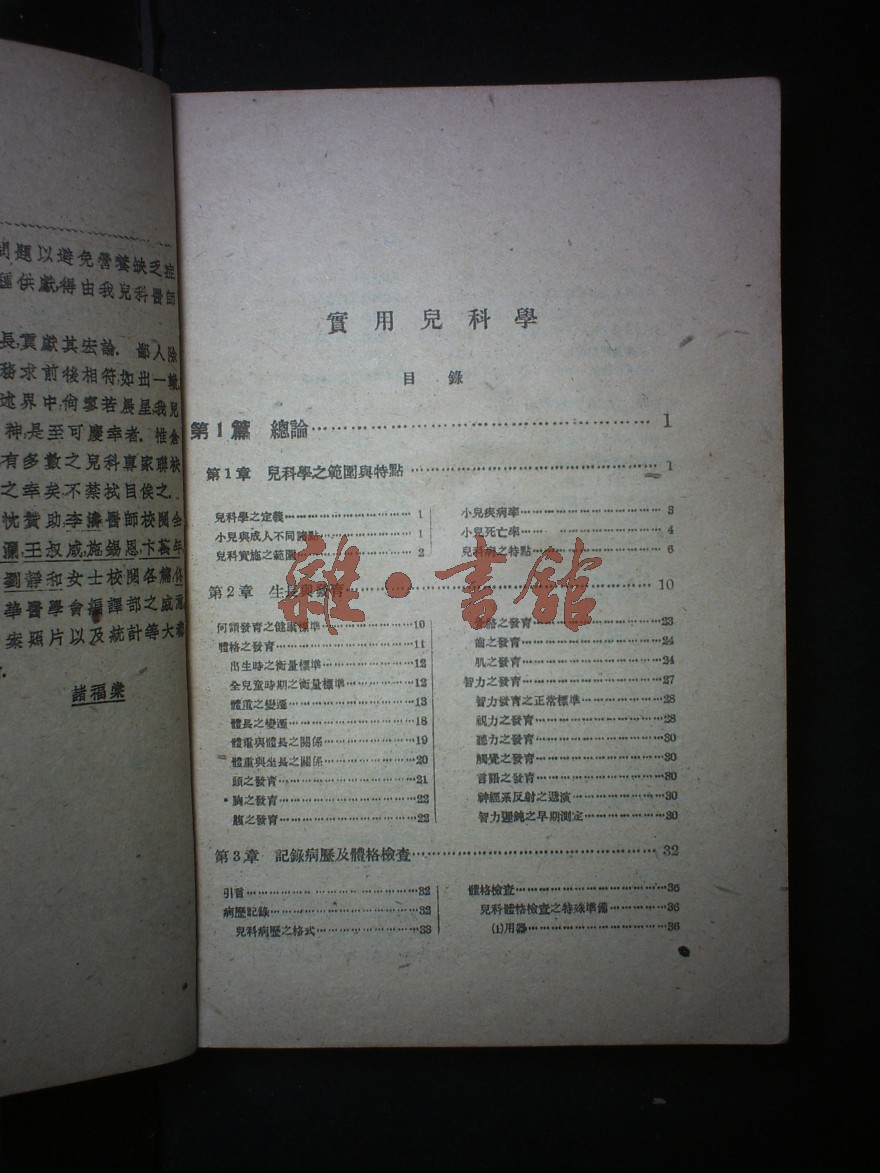 問題以避免營養缺乏症
種供獻,得由我兒科醫師
長,貢獻其宏論. 鄙人除
務求前後相符,如出一轍,
述界中,尙寥若晨星,我兒
神,是至可慶幸者. 惟倉
有多數之兒科專家聯袂
之幸矣,不禁拭目俟之.
忱贊助,李濤醫師校閱全
瀾,王叔咸,施錫恩,卞萬年,
劉靜和女士校閱各篇,
華醫學會編譯部之
案照片以及統計等大
諸福棠
實用兒科學
目 錄
第1篇 總論……1
第1章 兒科學之範圍與特點……1
兒科學之定義……1
小兒與成人不同諸點……1
兒科實施之範圍……2
小兒疾病率……3
小兒死亡率……4
兒科病之特點……6
第2章 生長與發育……10
何謂發育之健康標準……10
體格之發育……11
出生時之衡量標準……12
全兒童時期之衡量標準……12
體重之變遷……13
體長之變遷……18
體重與體長之關係……19
體重與坐長之關係……20
頭之發育……21
胸之發育……22
腹之發育……22
骨骼之發育……23
齒之發育……24
肌之發育……24
智力之發育……27
智力發育之正常標準……28
視力之發育……28
聽力之發育……30
觸覺之發育……30
言語之發育……30
神經系反射之遞演……30
智力遲鈍之早期測定……30
第3章 記錄病歷及體格檢查……32
引言……32
病歷記錄……32
兒科病歷之格式……33
體格檢查……36
兒科體格檢查之特殊準備……36
(1)用器……36
雜·書館